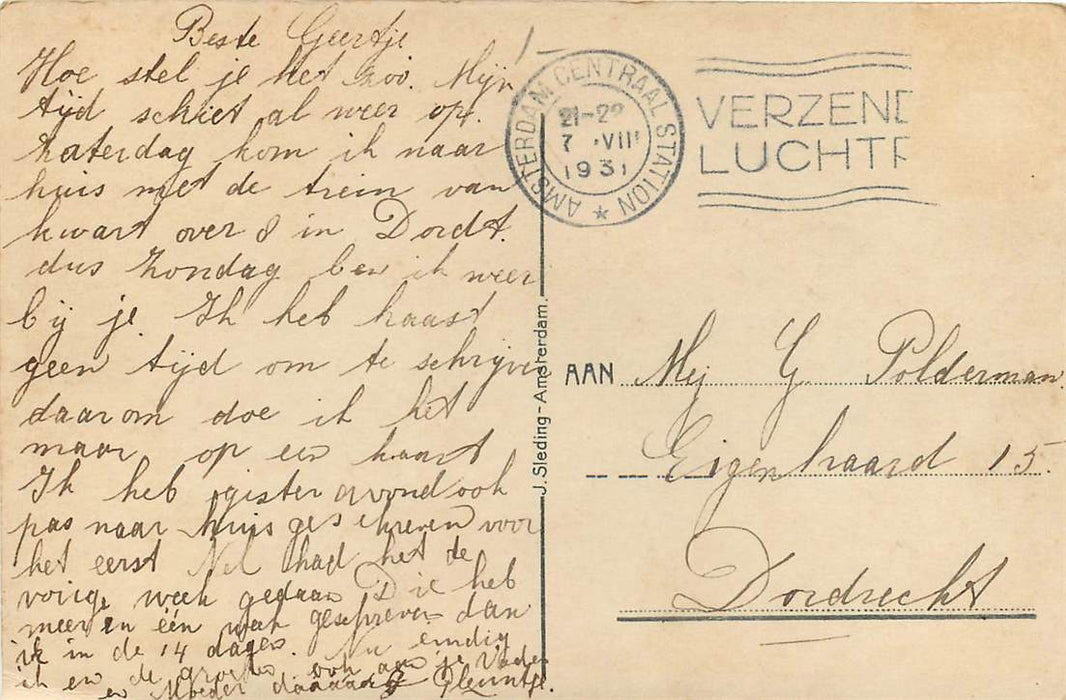 Beste Geertje
Hoe stel je het zoo. Mijn
tijd schiet al weer op.
Zaterdag kom ik naar
huis met de trein van
kwart over 8 in Dordt.
dus Zondag ben ik weer
bij je. Ik heb haast
geen tijd om te schrijven
daarom doe ik het
maar op een kaart
Ik heb gister avond ook
pas naar huis geschreven voor
het eerst Nel had het de
vorige week gedaan Die heb
meer in één week geschreven dan
ik in de 14 dagen. Nu eindig
ik en de groeten ook aan je Vader
en Moeder daaaag Pleuntje.
AMSTERDAM CENTRAAL STATION
21-22
7 VIII
1931
VERZEND
LUCHTP
J. Sleding - Amsterdam.
AAN Mej G Polderman
Eigenhaard 15.
Dordrecht